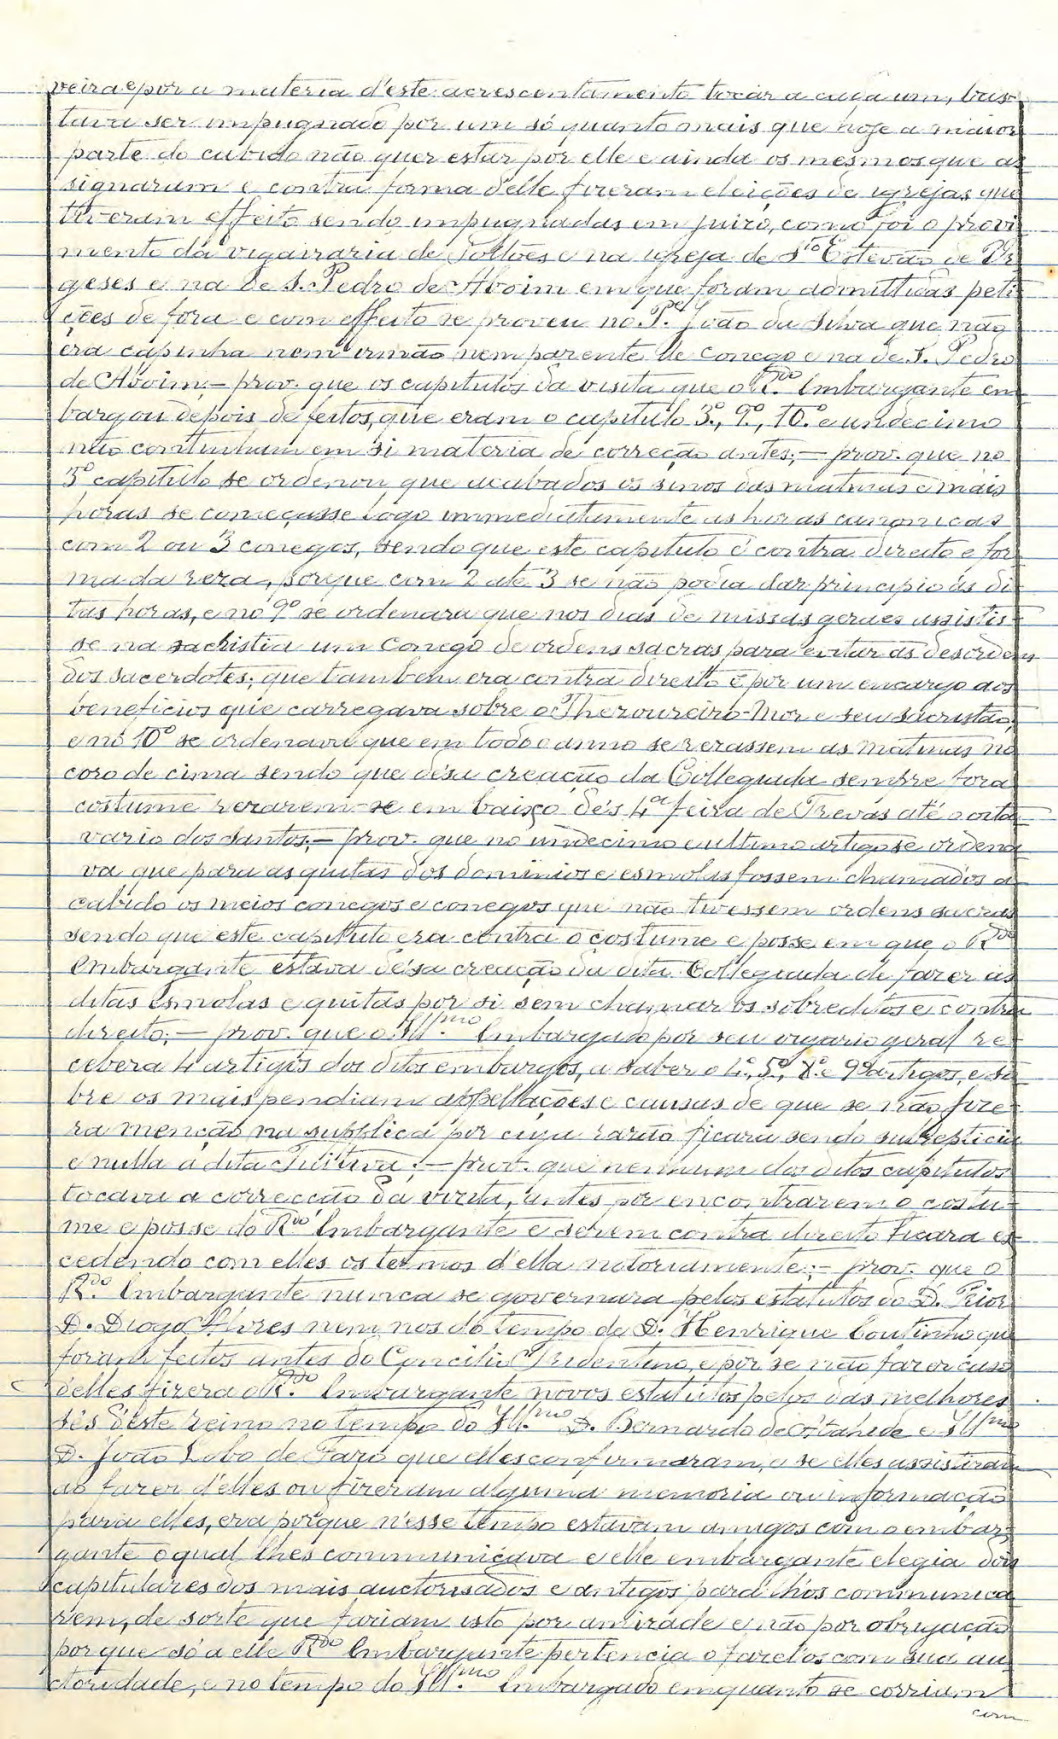 veira e por a materia d'este acrescentamento tocar a cada um, bas-
tava ser impugnado por um só quanto mais que hoje a maior
parte do cabido não quer estar por elle e ainda os mesmos que as-
signaram e contra forma delle fizeram eleições de igrejas que
tiveram effeito sendo impugnadas em juizo, como foi o provi-
mento da vigairaria de Doltões e na igreja de S.to Estevão de Ur-
geses e na de S. Pedro de Aboim em que foram admittidas peti-
ções de fora e com effeito se proveu no P.e João da Silva que não
era capinha nem irmão nem parente de conego e na de S. Pedro
de Aboim; — prov. que os capitulos da visita que o R.do Embargante em-
bargou depois de feitos, que eram o capitulo 3.º, 9.º, 10.º e undecimo
não continham em si materia de correcção antes; — prov. que no
3.º capitulo se ordenou que acabados os sinos das matinas e mais
horas se começasse logo immediatamente as horas canonicas
com 2 ou 3 conegos, sendo que este capitulo é contra direito e for-
ma da reza, porque com 2 até 3 se não podia dar principio ás di-
tas horas, e no 9.º se ordenara que nos dias de missas geraes assistis-
se na sachistia um conego de ordens sacras para evitar as desordens
dos sacerdotes; que tambem era contra direito e por um encargo aos
beneficios que carregava sobre o Thezoureiro-Mor e seu sacristão,
e no 10.º se ordenava que em todo o anno se rezassem as matinas no
coro de cima sendo que désa creação da Collegiada sempre fora
costume rezarem-se em baixo dés 4.ª feira de Trevas até o oita-
vario dos santos; — prov. que no undecimo e ultimo artigo se ordena-
va que para as quitas dos dominios e esmolas fossem chamados a
cabido os meios conegos e conegos que não tivessem ordens sacras
sendo que este capitulo era contra o costume e posse em que o R.do
Embargante estava désa creação da dita Collegiada de fazer as
ditas esmolas e quitas por si sem chamar os sobreditos e contra
direito; — prov. que o Ill.mo Embargado por seu vigario geral re-
cebera 4 artigos dos ditos embargos, a saber o 4.º, 5.º, 8.º e 9.º artigos, e so-
bre os mais pendiam appellações e causas de que se não fize-
ra menção na supplica por cuja razão ficara sendo surrepticia
e nulla a dita; — prov. que nenhum dos ditos capitulos
tocava a correcção da vizita, antes por encontrarem o costu-
me e posse do R.do Embargante e serem contra direito ficara ex-
cedendo com elles os termos d'ella notoriamente; — prov. que o
R.do Embargante nunca se governara pelos estatutos do D. Prior
D. Diogo Pires nem nos do tempo de D. Henrique Coutinho que
foram feitos antes do Concilio Tridentino, e por se não fazer caso
delles fizera o R.do Embargante novos estatutos pelos das melhores
sés d'este reino no tempo do Ill.mo D. Bernardo de Athaide e Ill.mo
D. João Lobo de Faro que elles confirmaram, e se elles assistiram
ao fazer d'elles ou fizeram alguma memoria ou informação
para elles, era porque n'esse tempo estavam amigos com o embar-
gante o qual lhes communicava e elle embargante elegia dois
capitulares dos mais auctorisados e antigos para lhos communica-
rem, de sorte que fariam isto por amizade e não por obrigação
por que só a elle R.do Embargante pertencia o fazel-os com sua au-
ctoridade, e no tempo do Ill.mo Embargado emquanto se corriam
com